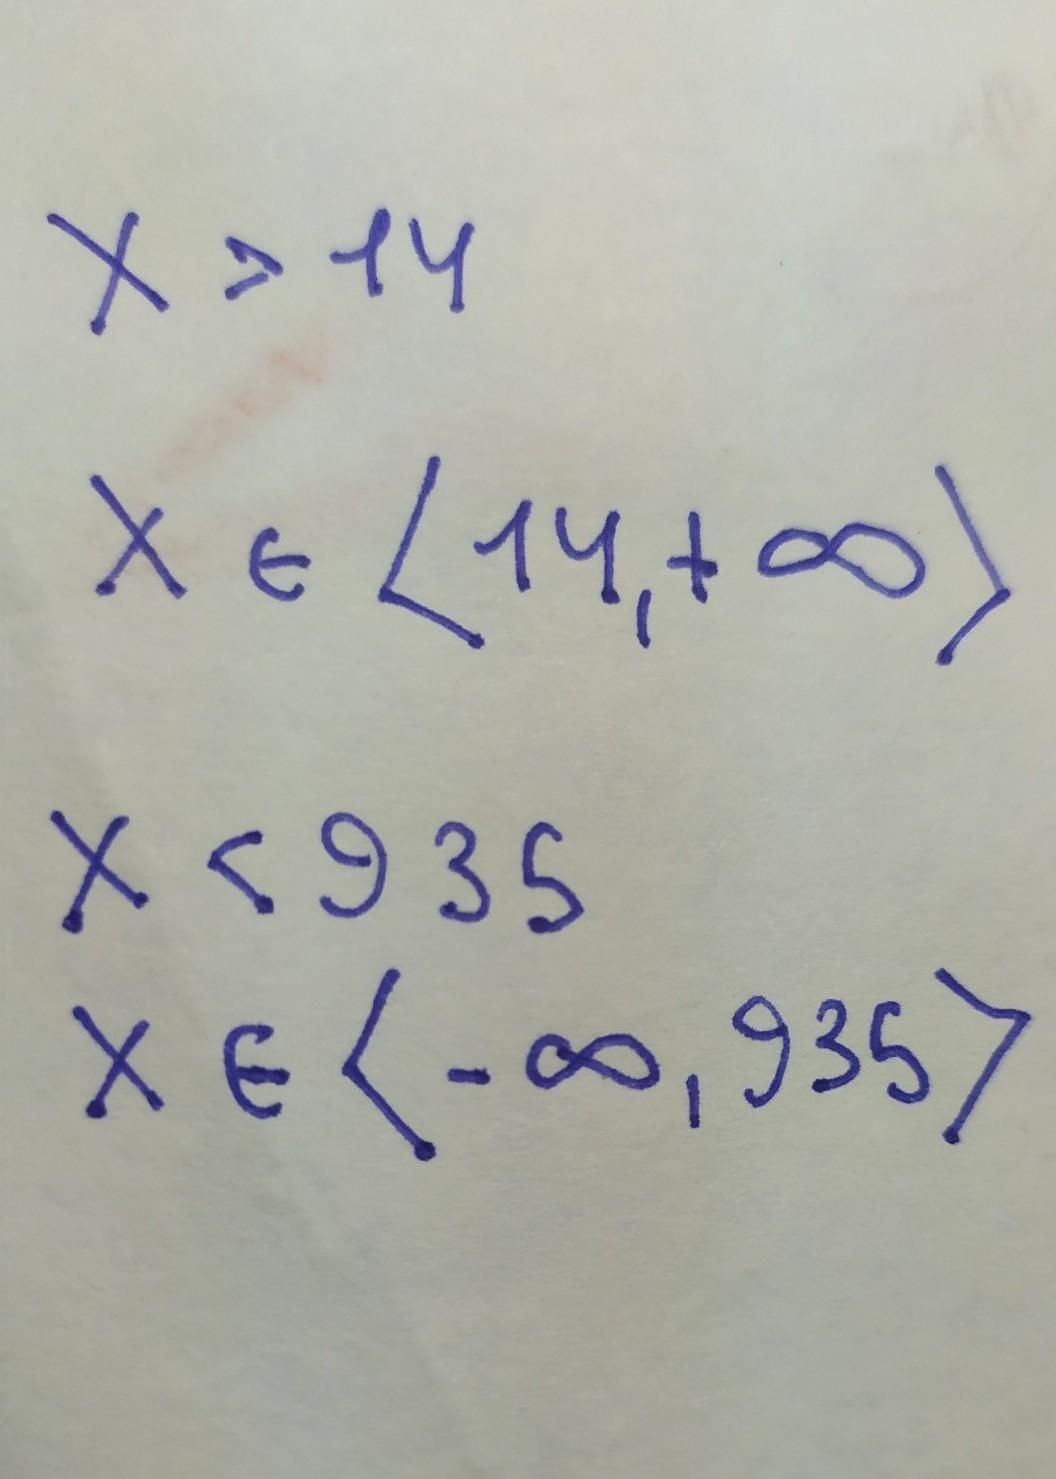 X > 14
X ∈ ⟨14,+∞⟩
X < 935
X ∈ ⟨-∞,935⟩